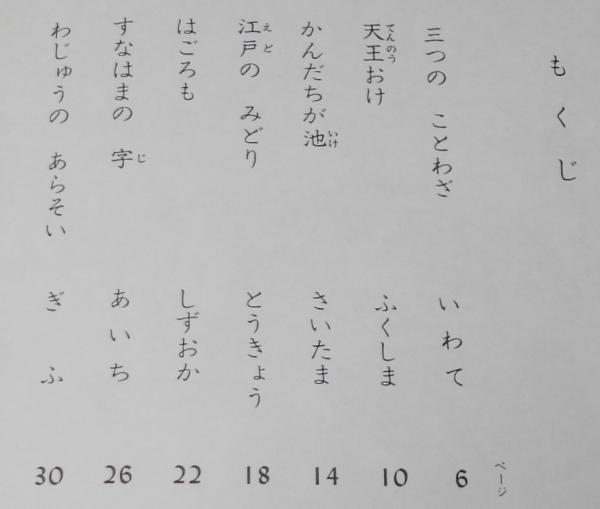 もくじ
ページ
三つの ことわざ いわて 6
天王おけ ふくしま 10
てんのう
かんだちが池 さいたま 14
いけ
江戸の みどり とうきょう 18
えど
はごろも しずおか 22
すなはまの 字 あいち 26
じ
わじゅうの あらそい ぎふ 30